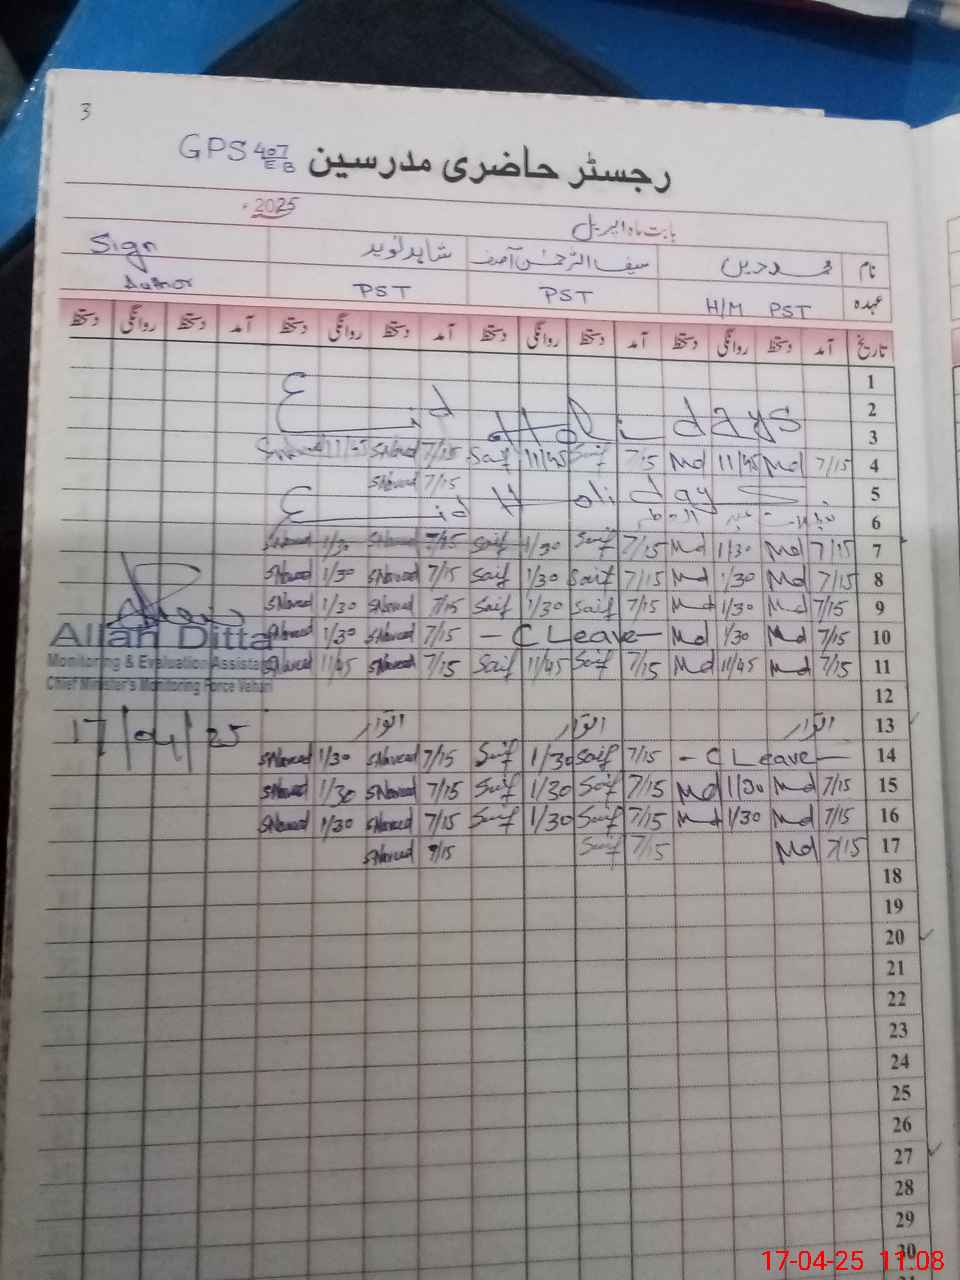 3
GPS 407/EB رجسٹر حاضری مدرسین
بابت ماہ اپریل 2025ء
نام محمد حسین سیف الرحمٰن آصف شاہد نوید Sign
عہدہ H/M PST PST PST Author
تاریخ آمد دستخط روانگی دستخط آمد دستخط روانگی دستخط آمد دستخط روانگی دستخط آمد دستخط روانگی دستخط
1
2 Eid Holidays
3
4 7/15 Md 11/45 Md 7/15 Saif 11/45 Saif 7/15 SNaveed 11/45 SNaveed
5 7/15 SNaveed
6 Eid Holidays
7 7/15 Md 1/30 Md 7/15 Saif 1/30 Saif 7/15 SNaveed 1/30 SNaveed
8 7/15 Md 1/30 Md 7/15 Saif 1/30 Saif 7/15 SNaveed 1/30 SNaveed
9 7/15 Md 1/30 Md 7/15 Saif 1/30 Saif 7/15 SNaveed 1/30 SNaveed
10 7/15 Md 1/30 Md - C Leave - 7/15 SNaveed 1/30 SNaveed
11 7/15 Md 11/45 Md 7/15 Saif 11/45 Saif 7/15 SNaveed 11/45 SNaveed
Allah Ditta
Monitoring & Evaluation Assistant
Chief Minister's Monitoring Force Vehari
17/04/25
12
13 اتوار اتوار اتوار
14 - C Leave - 7/15 Saif 1/30 Saif 7/15 SNaveed 1/30 SNaveed
15 7/15 Md 1/30 Md 7/15 Saif 1/30 Saif 7/15 SNaveed 1/30 SNaveed
16 7/15 Md 1/30 Md 7/15 Saif 1/30 Saif 7/15 SNaveed 1/30 SNaveed
17 7/15 Md 7/15 Saif 7/15 SNaveed
18
19
20
21
22
23
24
25
26
27
28
29
30
17-04-25 11:08